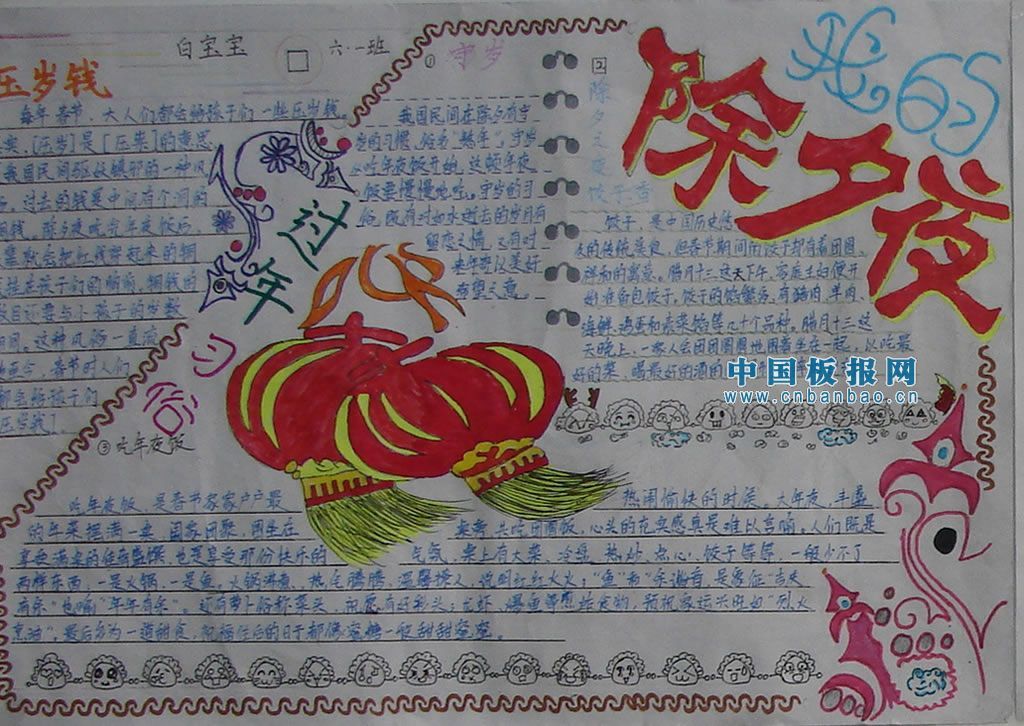 我的
除夕夜
白宝宝
六·一班
压岁钱
每年春节,大人们都会给孩子们一些压岁钱。
我国民间
过去的钱是中间有个洞的
铜钱。除夕夜吃完年夜饭后,
就会把红线穿起来的铜
数目还要与小孩子的岁数
相同。这种风俗一直流
春节时人们
都会给孩子们
压岁钱
过年
习俗
① 守岁
我国民间在除夕有守
岁的习惯,俗名“熬年”。守岁
从吃年夜饭开始,这顿年夜
饭要慢慢地吃。守岁的习
俗,既有对如水逝去的岁月有
留恋之情,又有对
来年寄以美好
希望之意。
② 除夕之夜饺子香
饺子,是中国历史悠
久的传统美食,但春节期间的饺子却有着团圆
祥和的寓意。腊月三十这天下午,家庭主妇便开
始准备包饺子,饺子的馅繁多,有猪肉、羊肉、
海鲜、鸡蛋和素菜馅等几十个品种。腊月三十这
天晚上,一家人会团团圆圆地围着坐在一起,以吃最
好的菜、喝最好的酒
中国板报网
www.cnbanbao.cn
③ 吃年夜饭
吃年夜饭,是春节家家户户最
热闹愉快的时候。大年夜,丰盛
的年菜摆满一桌,阖家团聚,围坐在
桌旁,共吃团圆饭,心头的充实感真是难以言喻。人们既是
享受满桌的佳肴盛馔,也是享受那份快乐的
气氛,桌上有大菜、冷盘、热炒、点心、饺子等等,一般少不了
两样东西,一是火锅,一是鱼。火锅沸煮,热气腾腾,温馨撩人,说明红红火火;“鱼”和“余”谐音,是象征“吉庆
有余”也喻“年年有余”。还有萝卜俗称菜头,祝愿有好彩头;龙虾、爆鱼等煎炸食物,预祝家运兴旺如“烈火
烹油”。最后多为一道甜食,祝福往后的日子都像蜜糖一般甜甜蜜蜜。